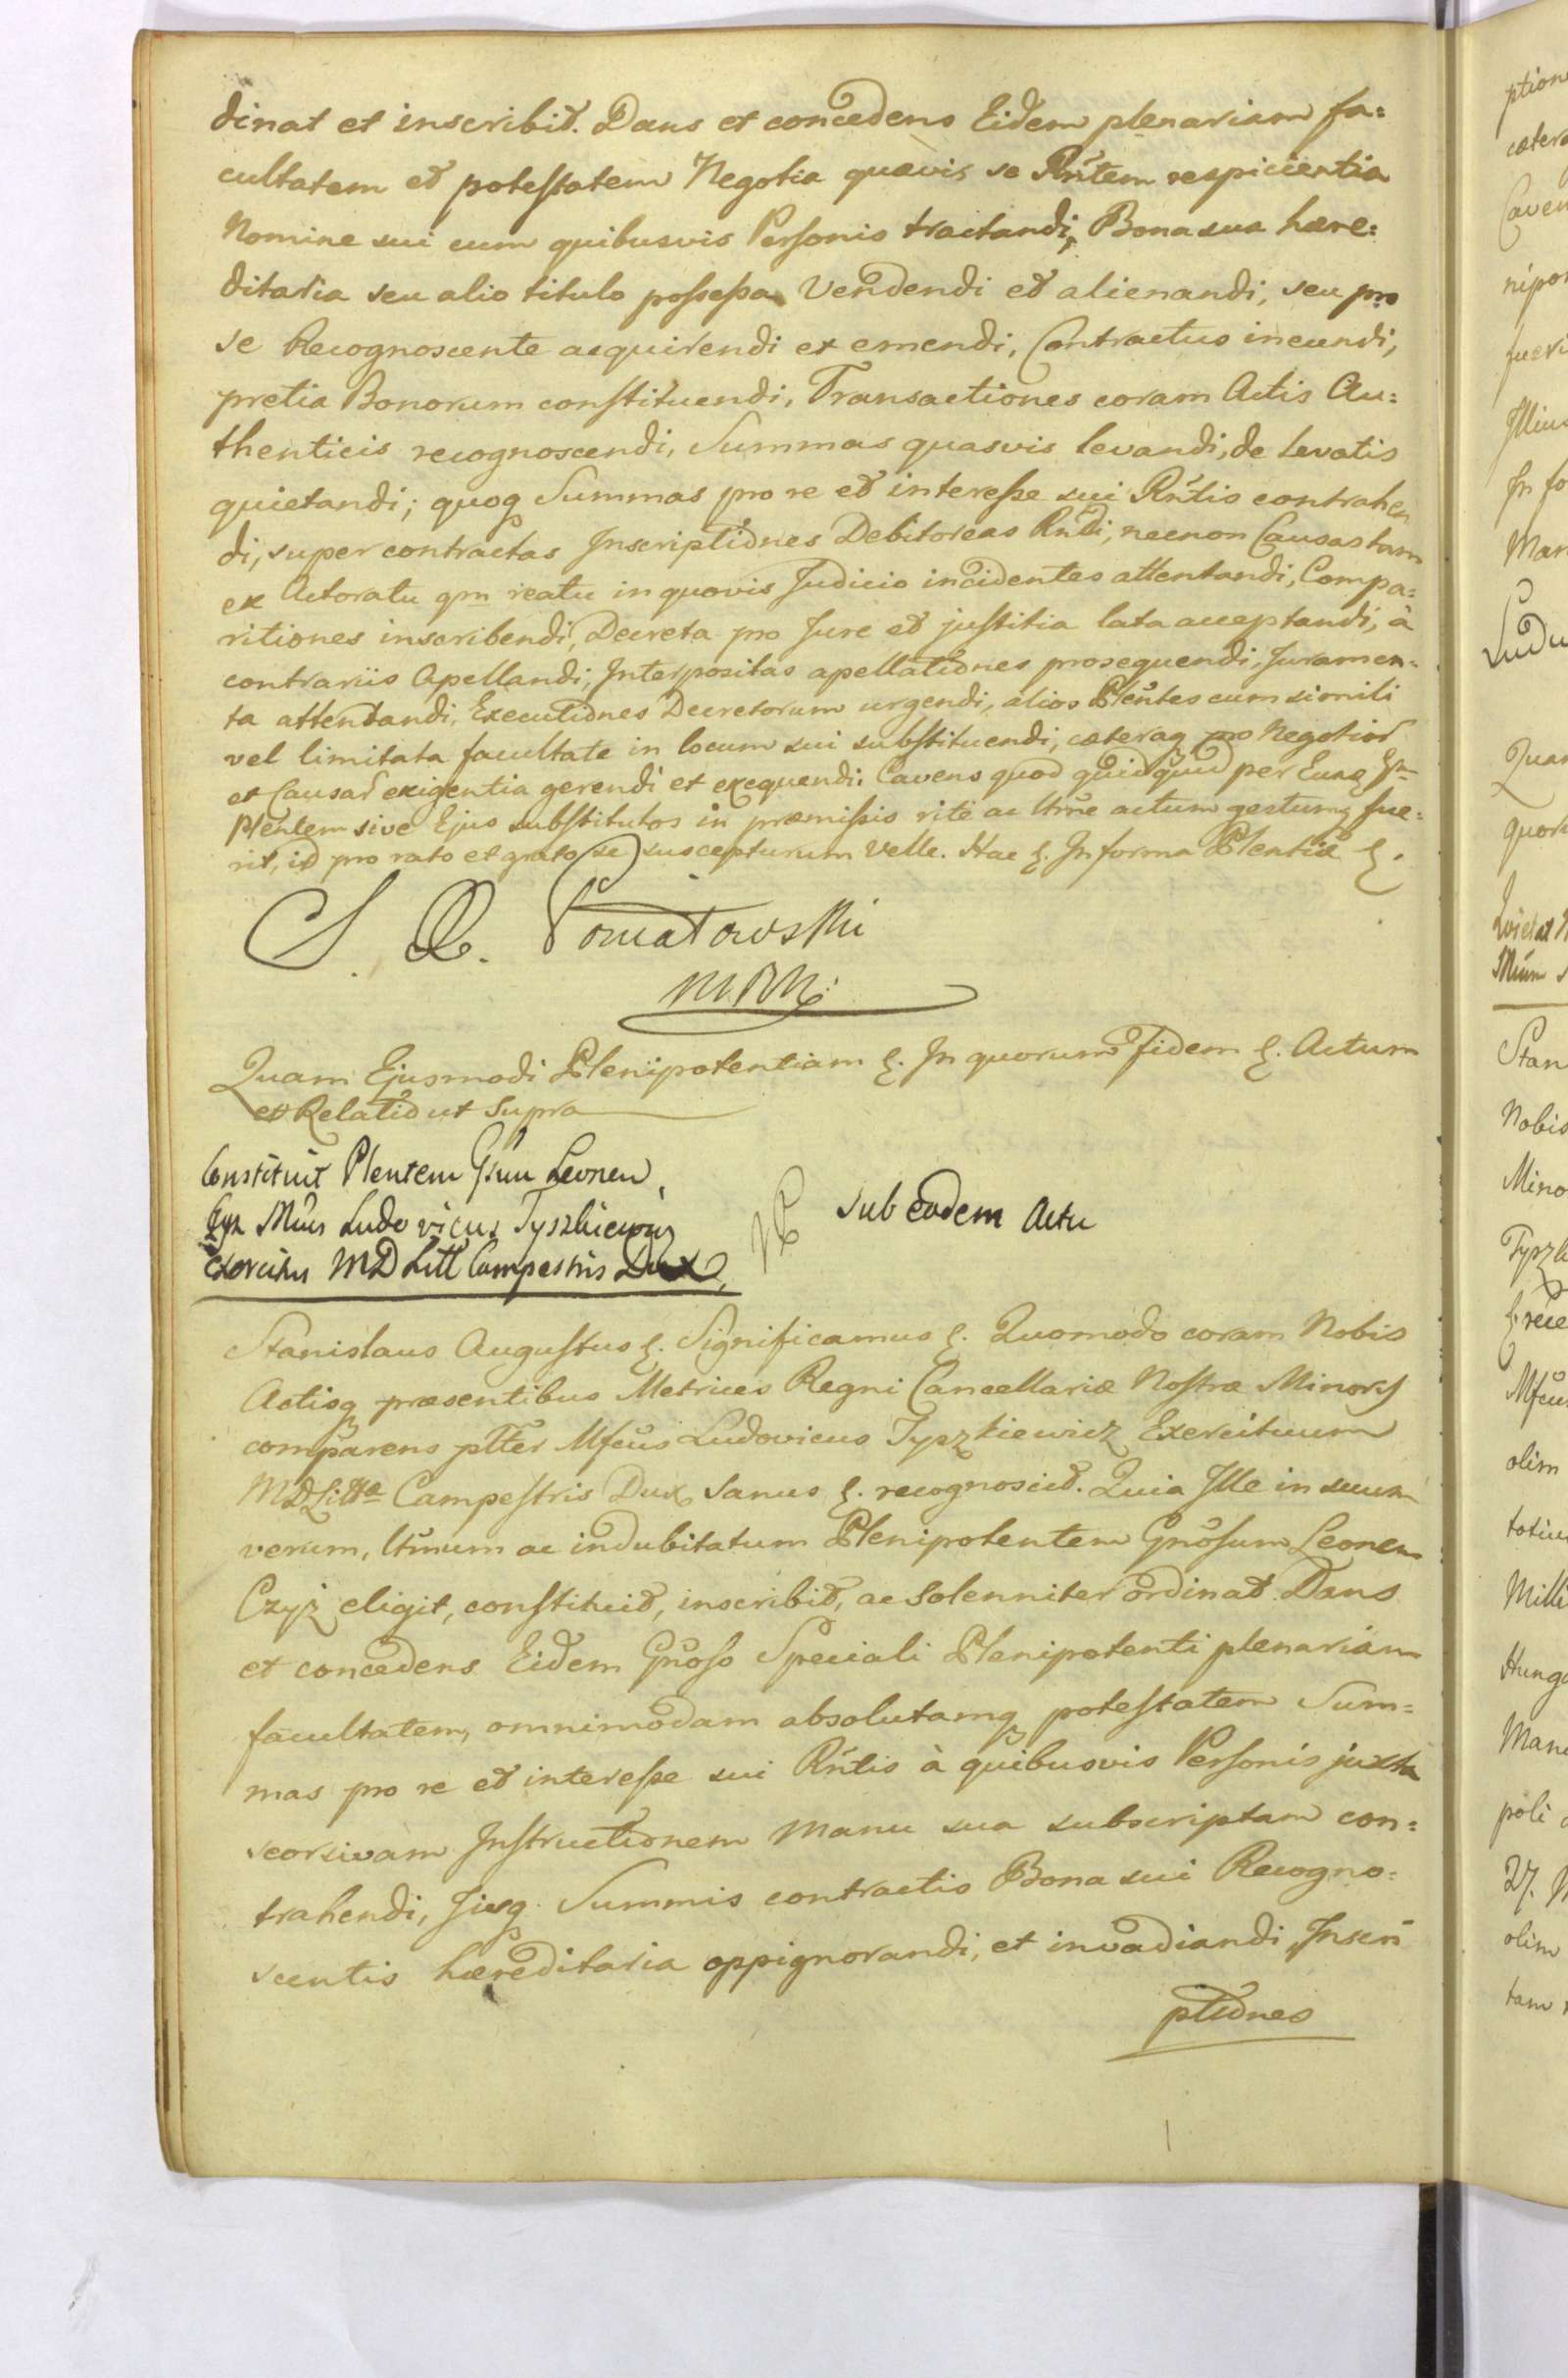 dinat et inscribit. Dans et concedens Eidem plenariam fa=
cultatem et potestatem Negotia quævis se Rntem respicientia
Nomine sui cum quibusvis Personis tractandi, Bona sua hære=
ditaria seu alio titulo possessa Vendendi et alienandi, seu pro
se Recognoscente acquirendi et emendi, Contractus ineundi,
pretia Bonorum constituendi, Transactiones coram Actis Au=
thenticis recognoscendi, Summas quasvis levandi, de levatis
quietandi; quoq Summas pro re et interesse sui Rntis contrahen
di, super contractas Inscriptiones Debitoreas Rndi, necnon Causas tam
ex Actoratu qm reatu in quovis Judicio incidentes attentandi, Compa=
ritiones inscribendi, Decreta pro Jure et justitia lata acceptandi, à
contrariis Apellandi, Interpositas apellationes prosequendi, Juramen=
ta attentandi, Executiones Decretorum urgendi, alios Plentes cum simili
vel limitata facultate in locum sui substituendi, cæteraq pro Negotior
et Causar exigentia gerendi et exequendi. Cavens quod quidquid per Eund
Plentem sive Ejus substitutos in præmissis rite ac ltme actum gestumq fue=
rit, id pro rato et grato se suscepturum Velle. Hac &. In forma Plentiæ &.
S. Poniatowski
Quam Ejusmodi Plenipotentiam &. In quorum fidem &. Actum
et Relatio ut Supra
Constituit Plentem Gsum Leonem
Czyz Mcus Ludovicus Tyszkiewicz
exercitus MD Litt Campestris Dux
Sub eodem Actu
Stanislaus Augustus &. Significamus &. Quomodo coram Nobis
Actisq præsentibus Metrices Regni Cancellariæ Nostræ Minoris
comparens plter Mfcus Ludovicus Tyszkiewicz Exercituum
MDLittæ Campestris Dux Sanus &. recognoscit. Quia Ille in suum
verum, ltmum ac indubitatum Plenipotentem Gnosum Leonem
Czyż eligit, constituit, inscribit, ac Solenniter ordinat. Dans
et concedens Eidem Gnoso Speciali Plenipotenti plenariam
facultatem, omnimodam absolutamq potestatem Sum=
mas pro re et interesse sui Rntis à quibusvis Personis juxta
seorsivam Instructionem Manu sua subscriptam con=
trahendi, Jisq Summis contractis Bona sui Recogno=
scentis hæreditaria oppignorandi, et invadiandi, Inscri
ptiones